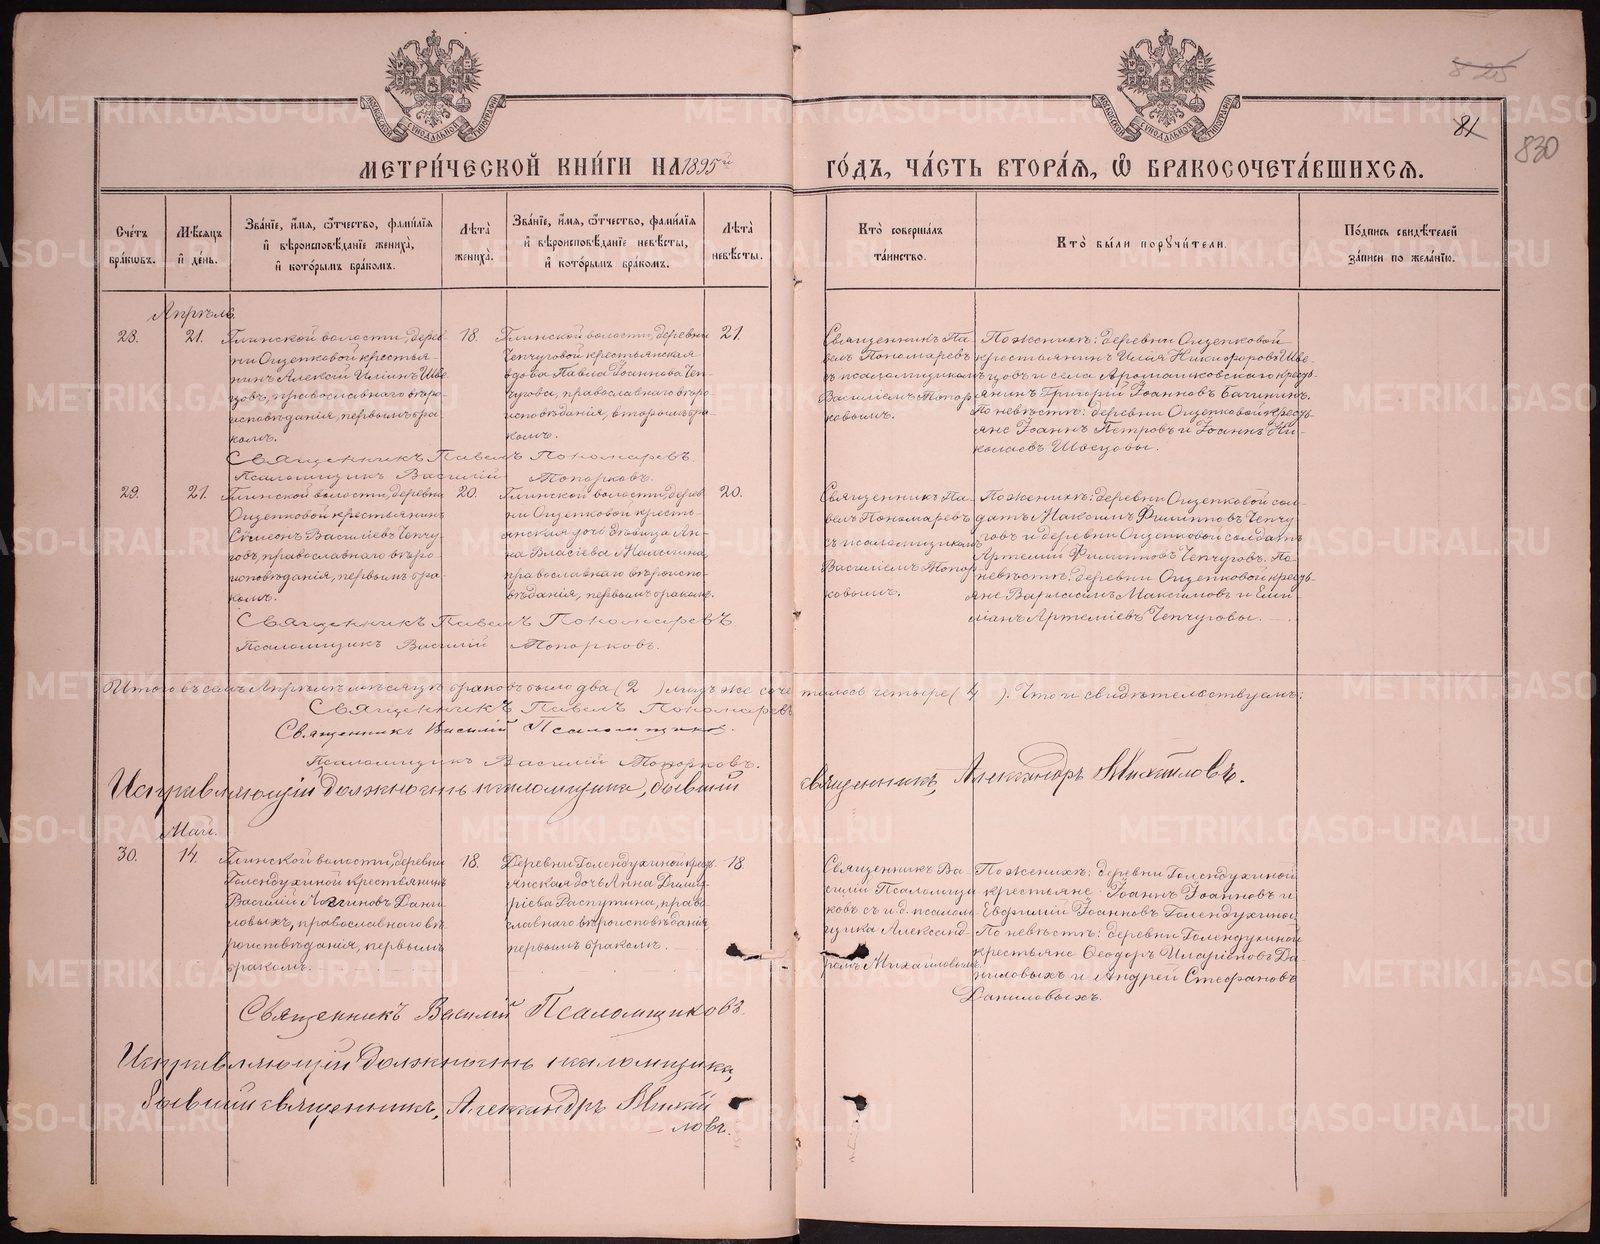 825
81
830
МЕТРИ́ЧЕСКОЙ КНИ́ГИ НА 1895й ГО́ДЪ, ЧА́СТЬ ВТОРА́Я, Ѡ БРАКОСОЧЕТА́ВШИХСЯ.
Сче́тъ бра́кѡвъ.
Мѣ́сяцъ и҆ де́нь.
Зва́нїе, и҆́мя, ѻ҆́тчество, фами́лїѧ
и҆ вѣроисповѣ́данїе жениха̀,
и҆ кото́рымъ бра́комъ.
Лѣ́та жениха̀.
Зва́нїе, и҆́мя, ѻ҆́тчество, фами́лїѧ
и҆ вѣроисповѣ́данїе невѣ́сты,
и҆ кото́рымъ бра́комъ.
Лѣ́та невѣ́сты.
Кто̀ соверша́лъ
та́инство.
Кто̀ бы́ли порꙋчи́тели.
По́дпись свидѣ́телей
за́писи по жела́нїю.
Апрѣль
28.
21.
Глинской волости, дерев-
ни Ощепковой крестья-
нинъ Алексій Иліинъ Шве-
цовъ, православнаго вѣро-
исповѣданія, первымъ бра-
комъ.
18.
Глинской волости, деревни
Чепчуговой крестьянская
вдова Павла Іоаннова Чеп-
чугова, православнаго вѣро-
исповѣданія, вторымъ бра-
комъ.
21.
Священникъ Па-
велъ Пономаревъ
съ псаломщикомъ
Василіемъ Топор-
ковымъ.
По женихѣ: деревни Ощепковой
крестьянинъ Илія Никифоровъ Шве-
цовъ и села Арамашковскаго кресть-
янинъ Григорій Іоанновъ Бачининъ.
По невѣстѣ: деревни Ощепковой кресть-
яне Іоаннъ Петровъ и Іоаннъ Ни-
колаевъ Швецовы.
Священникъ Павелъ Пономаревъ.
Псаломщикъ Василій Топорковъ.
29.
21.
Глинской волости, деревни
Ощепковой крестьянинъ
Сѵмеонъ Василіевъ Чепчу-
говъ, православнаго вѣро-
исповѣданія, первымъ бра-
комъ.
20.
Глинской волости, дерев-
ни Ощепковой кресть-
янская дочь дѣвица Ан-
на Власіева Малыгина,
православнаго вѣроиспо-
вѣданія, первымъ бракомъ.
20.
Священникъ Па-
велъ Пономаревъ
съ псаломщикомъ
Василіемъ Топор-
ковымъ.
По женихѣ: деревни Ощепковой сол-
датъ Максимъ Филипповъ Чепчу-
говъ и деревни Ощепковой солдатъ
Артемій Филипповъ Чепчуговъ. По
невѣстѣ: деревни Ощепковой кресть-
яне Варласимъ Максимовъ и Еми-
ліанъ Артеміевъ Чепчуговы.
Священникъ Павелъ Пономаревъ
Псаломщикъ Василій Топорковъ.
Итого въ семъ Апрѣлѣ мѣсяцѣ браковъ было два (2) лицъ же сочеталось четыре (4). Что и свидѣтельствуемъ:
Священникъ Павелъ Пономаревъ
Священникъ Василій Псаломщиковъ.
Псаломщикъ Василій Топорковъ.
Исправляющій должность псаломщика, бывшій священникъ, Александръ Михайловъ.
Май.
30.
14.
Глинской волости, деревни
Голендухиной крестьянинъ
Василій Логгиновъ Дани-
ловыхъ, православнаго вѣ-
роисповѣданія, первымъ
бракомъ.
18.
Деревни Голендухиной крест-
янская дочь Анна Димит-
ріева Распутина, право-
славнаго вѣроисповѣданія
первымъ бракомъ.
18.
Священникъ Ва-
силій Псаломщи-
ковъ съ и. д. псалом-
щика Александ-
ромъ Михайловымъ.
По женихѣ: деревни Голендухиной
крестьяне Іоаннъ Іоанновъ и
Евфимій Іоанновъ Голендухины.
По невѣстѣ: деревни Голендухиной
крестьяне Ѳеодоръ Иларіоновъ Да-
ниловыхъ и Андрей Стефановъ
Даниловыхъ.
Священникъ Василій Псаломщиковъ.
Исправляющій должность псаломщика,
бывшій священникъ, Александръ Михай-
ловъ.
METRIKI.GASO-URAL.RU